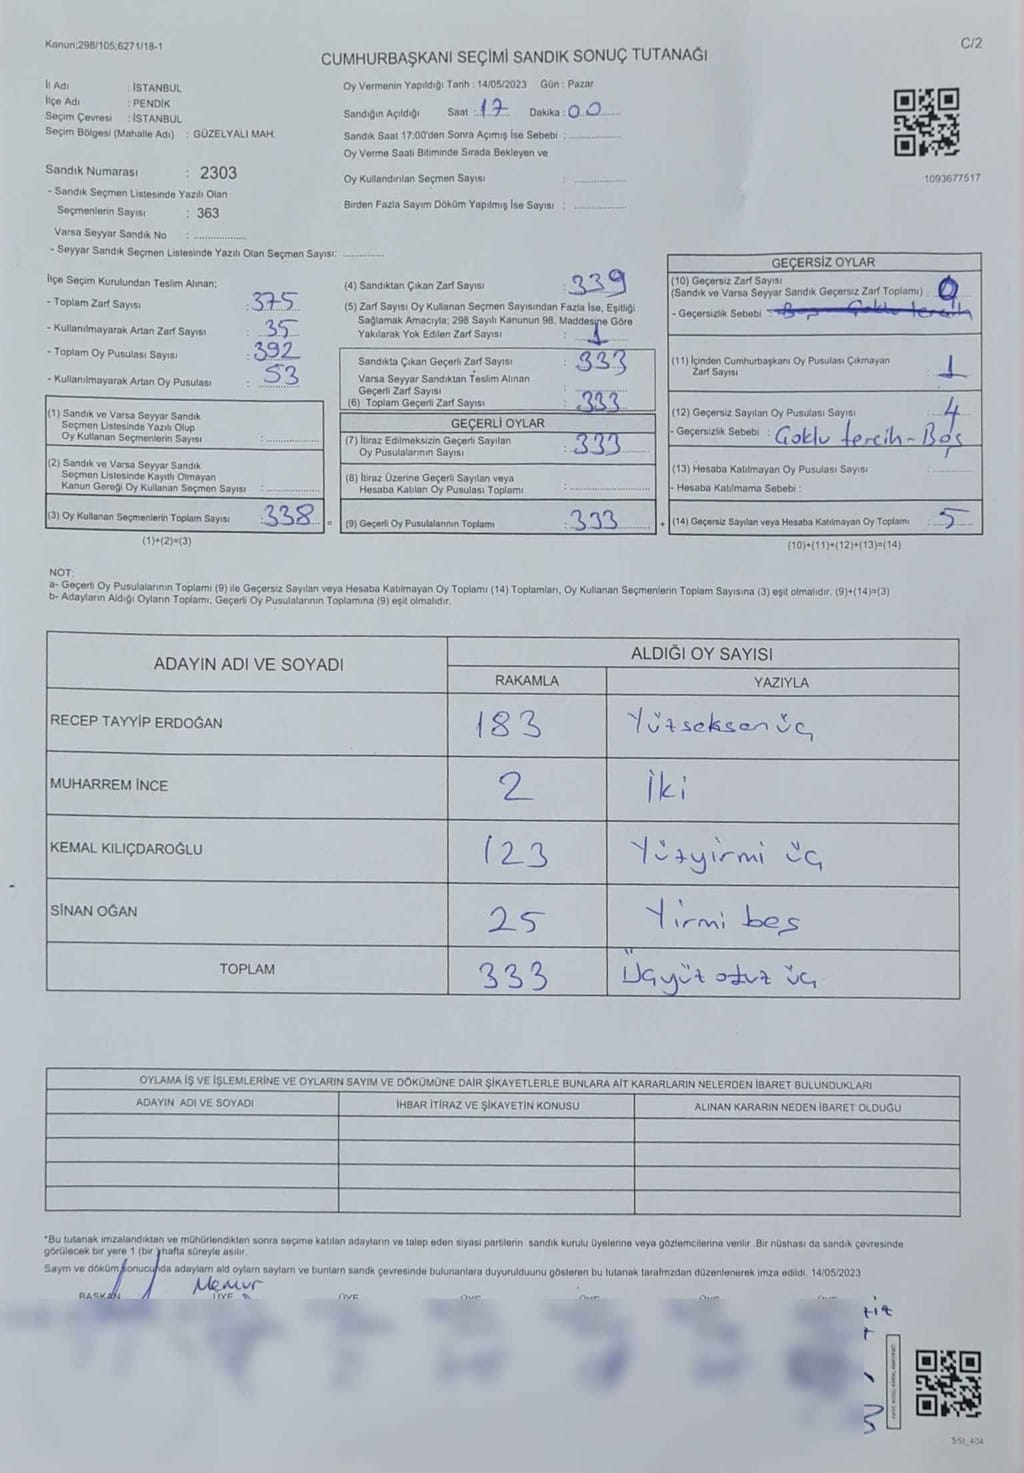 Kanun;298/105;6271/18-1
C/2
CUMHURBAŞKANI SEÇİMİ SANDIK SONUÇ TUTANAĞI
İl Adı : İSTANBUL
İlçe Adı : PENDİK
Seçim Çevresi : İSTANBUL
Seçim Bölgesi (Mahalle Adı) : GÜZELYALI MAH.
Sandık Numarası : 2303
- Sandık Seçmen Listesinde Yazılı Olan
Seçmenlerin Sayısı : 363
Varsa Seyyar Sandık No : ..................
- Seyyar Sandık Seçmen Listesinde Yazılı Olan Seçmen Sayısı: ..............
Oy Vermenin Yapıldığı Tarih : 14/05/2023 Gün : Pazar
Sandığın Açıldığı Saat : 17 Dakika : 00
Sandık Saat 17:00'den Sonra Açımış İse Sebebi : ..................
Oy Verme Saati Bitiminde Sırada Bekleyen ve
Oy Kullandırılan Seçmen Sayısı : ..................
Birden Fazla Sayım Döküm Yapılmış İse Sayısı : ..................
1093677517
İlçe Seçim Kurulundan Teslim Alınan;
- Toplam Zarf Sayısı : 375
- Kullanılmayarak Artan Zarf Sayısı : 35
- Toplam Oy Pusulası Sayısı : 392
- Kullanılmayarak Artan Oy Pusulası : 53
(1) Sandık ve Varsa Seyyar Sandık
Seçmen Listesinde Yazılı Olup
Oy Kullanan Seçmenlerin Sayısı : ..................
(2) Sandık ve Varsa Seyyar Sandık
Seçmen Listesinde Kayıtlı Olmayan
Kanun Gereği Oy Kullanan Seçmen Sayısı : ..................
(3) Oy Kullanan Seçmenlerin Toplam Sayısı : 338 =
(1)+(2)=(3)
(4) Sandıktan Çıkan Zarf Sayısı : 339
(5) Zarf Sayısı Oy Kullanan Seçmen Sayısından Fazla İse, Eşitliği
Sağlamak Amacıyla; 298 Sayılı Kanunun 98. Maddesine Göre
Yakılarak Yok Edilen Zarf Sayısı : 1
Sandıkta Çıkan Geçerli Zarf Sayısı : 333
Varsa Seyyar Sandıktan Teslim Alınan
Geçerli Zarf Sayısı : ..................
(6) Toplam Geçerli Zarf Sayısı : 333
GEÇERLİ OYLAR
(7) İtiraz Edilmeksizin Geçerli Sayılan
Oy Pusulalarının Sayısı : 333
(8) İtiraz Üzerine Geçerli Sayılan veya
Hesaba Katılan Oy Pusulası Toplamı : ..................
(9) Geçerli Oy Pusulalarının Toplamı : 333 +
GEÇERSİZ OYLAR
(10) Geçersiz Zarf Sayısı
(Sandık ve Varsa Seyyar Sandık Geçersiz Zarf Toplamı) : 0
- Geçersizlik Sebebi : Boş Çoklu tercih
(11) İçinden Cumhurbaşkanı Oy Pusulası Çıkmayan
Zarf Sayısı : 1
(12) Geçersiz Sayılan Oy Pusulası Sayısı : 4
- Geçersizlik Sebebi : Çoklu tercih - Boş
(13) Hesaba Katılmayan Oy Pusulası Sayısı : ............
- Hesaba Katılmama Sebebi :
(14) Geçersiz Sayılan veya Hesaba Katılmayan Oy Toplamı : 5
(10)+(11)+(12)+(13)=(14)
NOT:
a- Geçerli Oy Pusulalarının Toplamı (9) ile Geçersiz Sayılan veya Hesaba Katılmayan Oy Toplamı (14) Toplamları, Oy Kullanan Seçmenlerin Toplam Sayısına (3) eşit olmalıdır. (9)+(14)=(3)
b- Adayların Aldığı Oyların Toplamı, Geçerli Oy Pusulalarının Toplamına (9) eşit olmalıdır.
ADAYIN ADI VE SOYADI
ALDIĞI OY SAYISI
RAKAMLA YAZIYLA
RECEP TAYYİP ERDOĞAN 183 Yüzseksen üç
MUHARREM İNCE 2 İki
KEMAL KILIÇDAROĞLU 123 Yüzyirmi üç
SİNAN OĞAN 25 Yirmi beş
TOPLAM 333 Üçyüz otuz üç
OYLAMA İŞ VE İŞLEMLERİNE VE OYLARIN SAYIM VE DÖKÜMÜNE DAİR ŞİKAYETLERLE BUNLARA AİT KARARLARIN NELERDEN İBARET BULUNDUKLARI
ADAYIN ADI VE SOYADI İHBAR İTİRAZ VE ŞİKAYETİN KONUSU ALINAN KARARIN NEDEN İBARET OLDUĞU
*Bu tutanak imzalandıktan ve mühürlendikten sonra seçime katılan adayların ve talep eden siyasi partilerin sandık kurulu üyelerine veya gözlemcilerine verilir .Bir nüshası da sandık çevresinde
görülecek bir yere 1 (bir ) hafta süreyle asılır.
Sayım ve döküm sonucunda adayların ald oyların sayların ve bunların sandk çevresinde bulunanlara duyurulduunu gösteren bu tutanak tarafmzdan düzenlenerek imza edildi. 14/05/2023
Memur
BAŞKAN ÜYE ÜYE
SSI_404